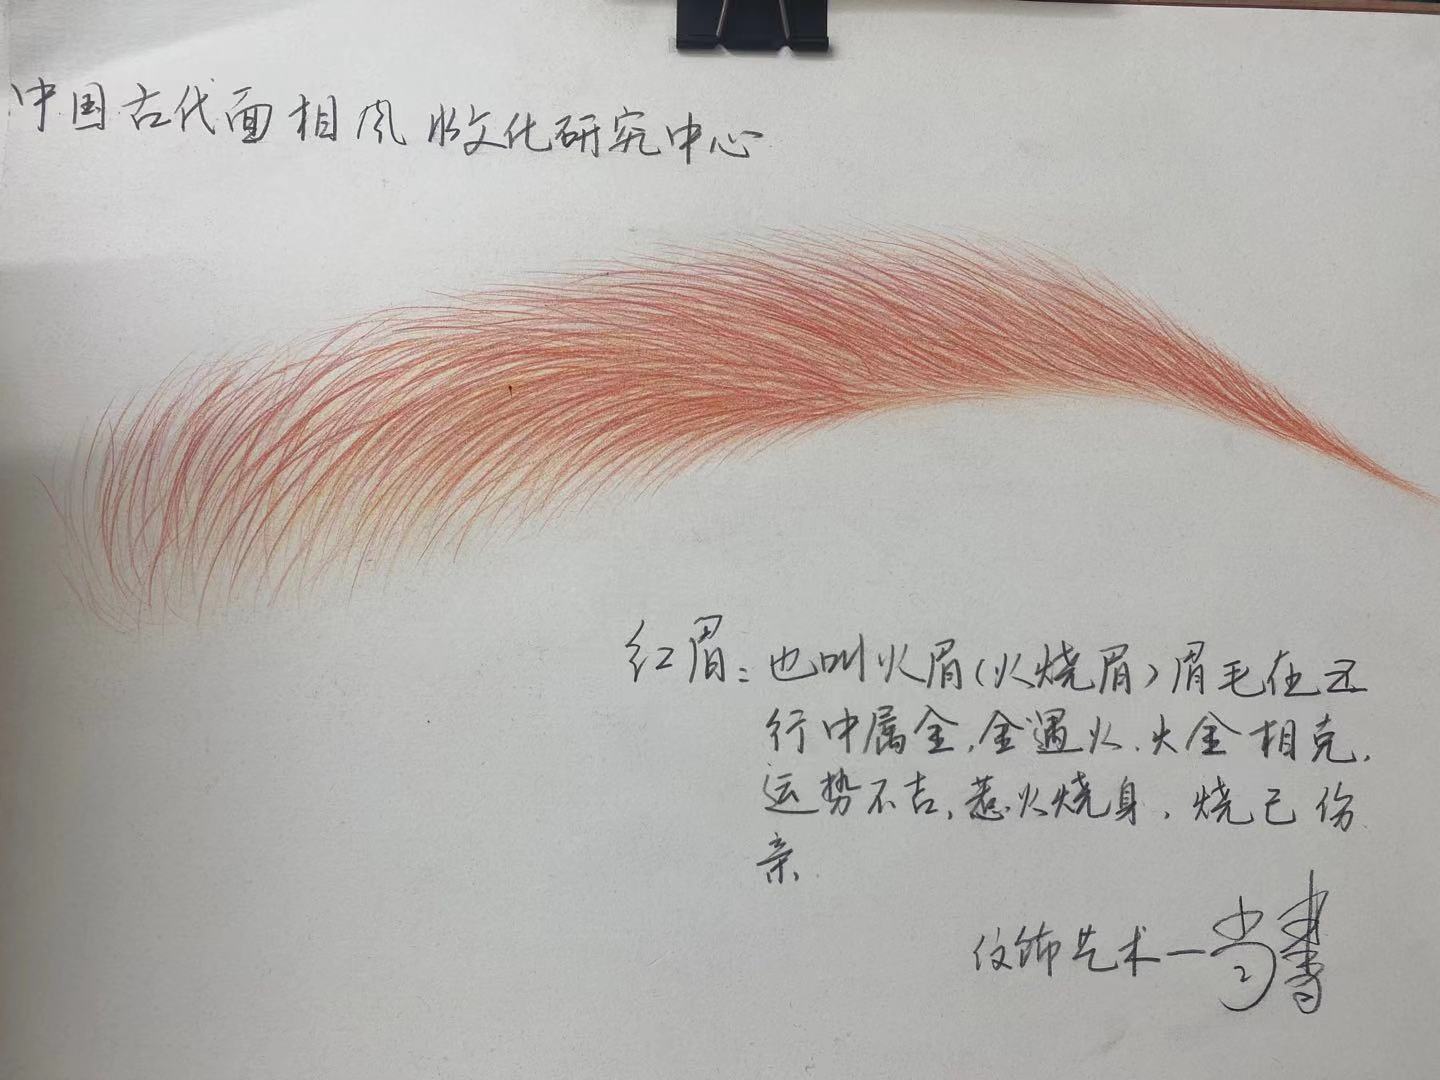 中国古代面相风水文化研究中心
红眉：也叫火眉（火烧眉）眉毛在五
行中属金，金遇火、火金相克，
运势不吉，惹火烧身，烧己伤
亲
纹饰艺术一